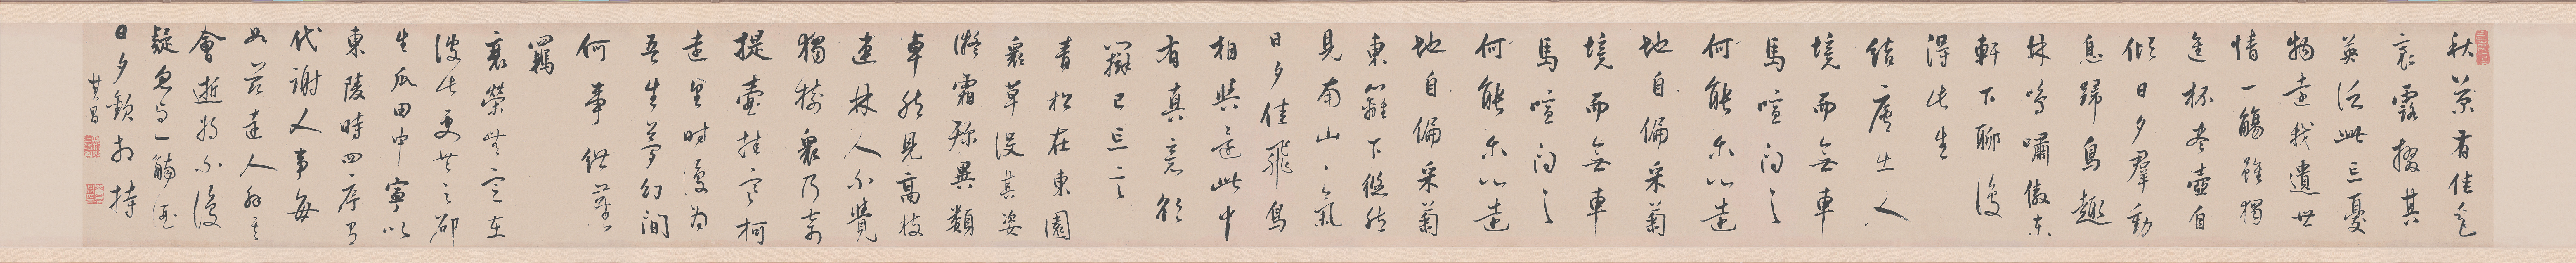 秋菊有佳色
裛露掇其
英汎此忘憂
物遠我遺世
情一觴雖獨
進杯盡壺自
傾日夕羣動
息歸鳥趨
林鳴嘯傲東
軒下聊復
得此生
結廬在人
境而無車
馬喧問之
何能尔心遠
地自偏采菊
境而無車
馬喧問之
何能尔心遠
地自偏采菊
東籬下悠然
見南山々氣
日夕佳飛鳥
相與還此中
有真意欲
辯已忘言
青松在東園
衆草沒其姿
凝霜殄異類
卓然見高枝
連林人不覺
獨樹衆乃奇
提壺挂寒柯
遠望時復為
吾生夢幻間
何事紲塵
羈
衰榮無定在
彼此更共之邵
生瓜田中寧似
東陵時四序有
代謝人事每
如茲達人解其
會逝將不復
疑忽與一觴酒
日夕歡相持
其昌